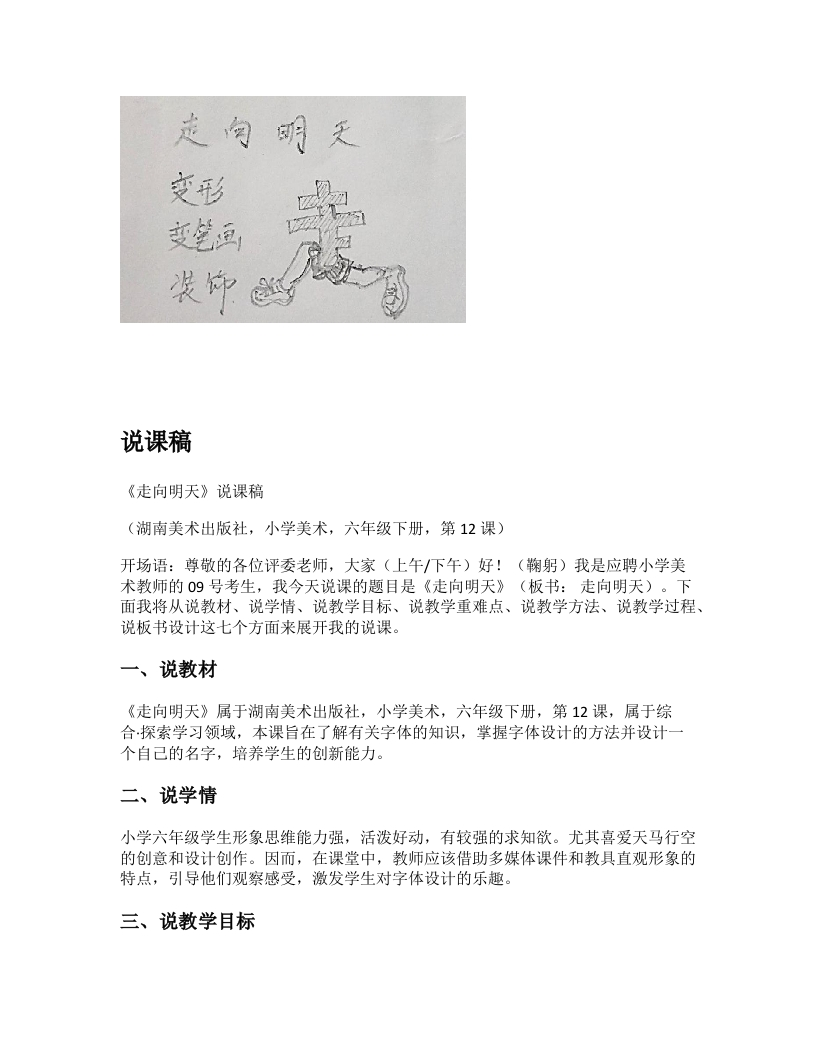 走向明天
变形
变笔画
装饰
走
说课稿
《走向明天》说课稿
（湖南美术出版社，小学美术，六年级下册，第 12 课）
开场语：尊敬的各位评委老师，大家（上午/下午）好！（鞠躬）我是应聘小学美
术教师的 09 号考生，我今天说课的题目是《走向明天》（板书： 走向明天）。下
面我将从说教材、说学情、说教学目标、说教学重难点、说教学方法、说教学过程、
说板书设计这七个方面来展开我的说课。
一、说教材
《走向明天》属于湖南美术出版社，小学美术，六年级下册，第 12 课，属于综
合·探索学习领域，本课旨在了解有关字体的知识，掌握字体设计的方法并设计一
个自己的名字，培养学生的创新能力。
二、说学情
小学六年级学生形象思维能力强，活泼好动，有较强的求知欲。尤其喜爱天马行空
的创意和设计创作。因而，在课堂中，教师应该借助多媒体课件和教具直观形象的
特点，引导他们观察感受，激发学生对字体设计的乐趣。
三、说教学目标